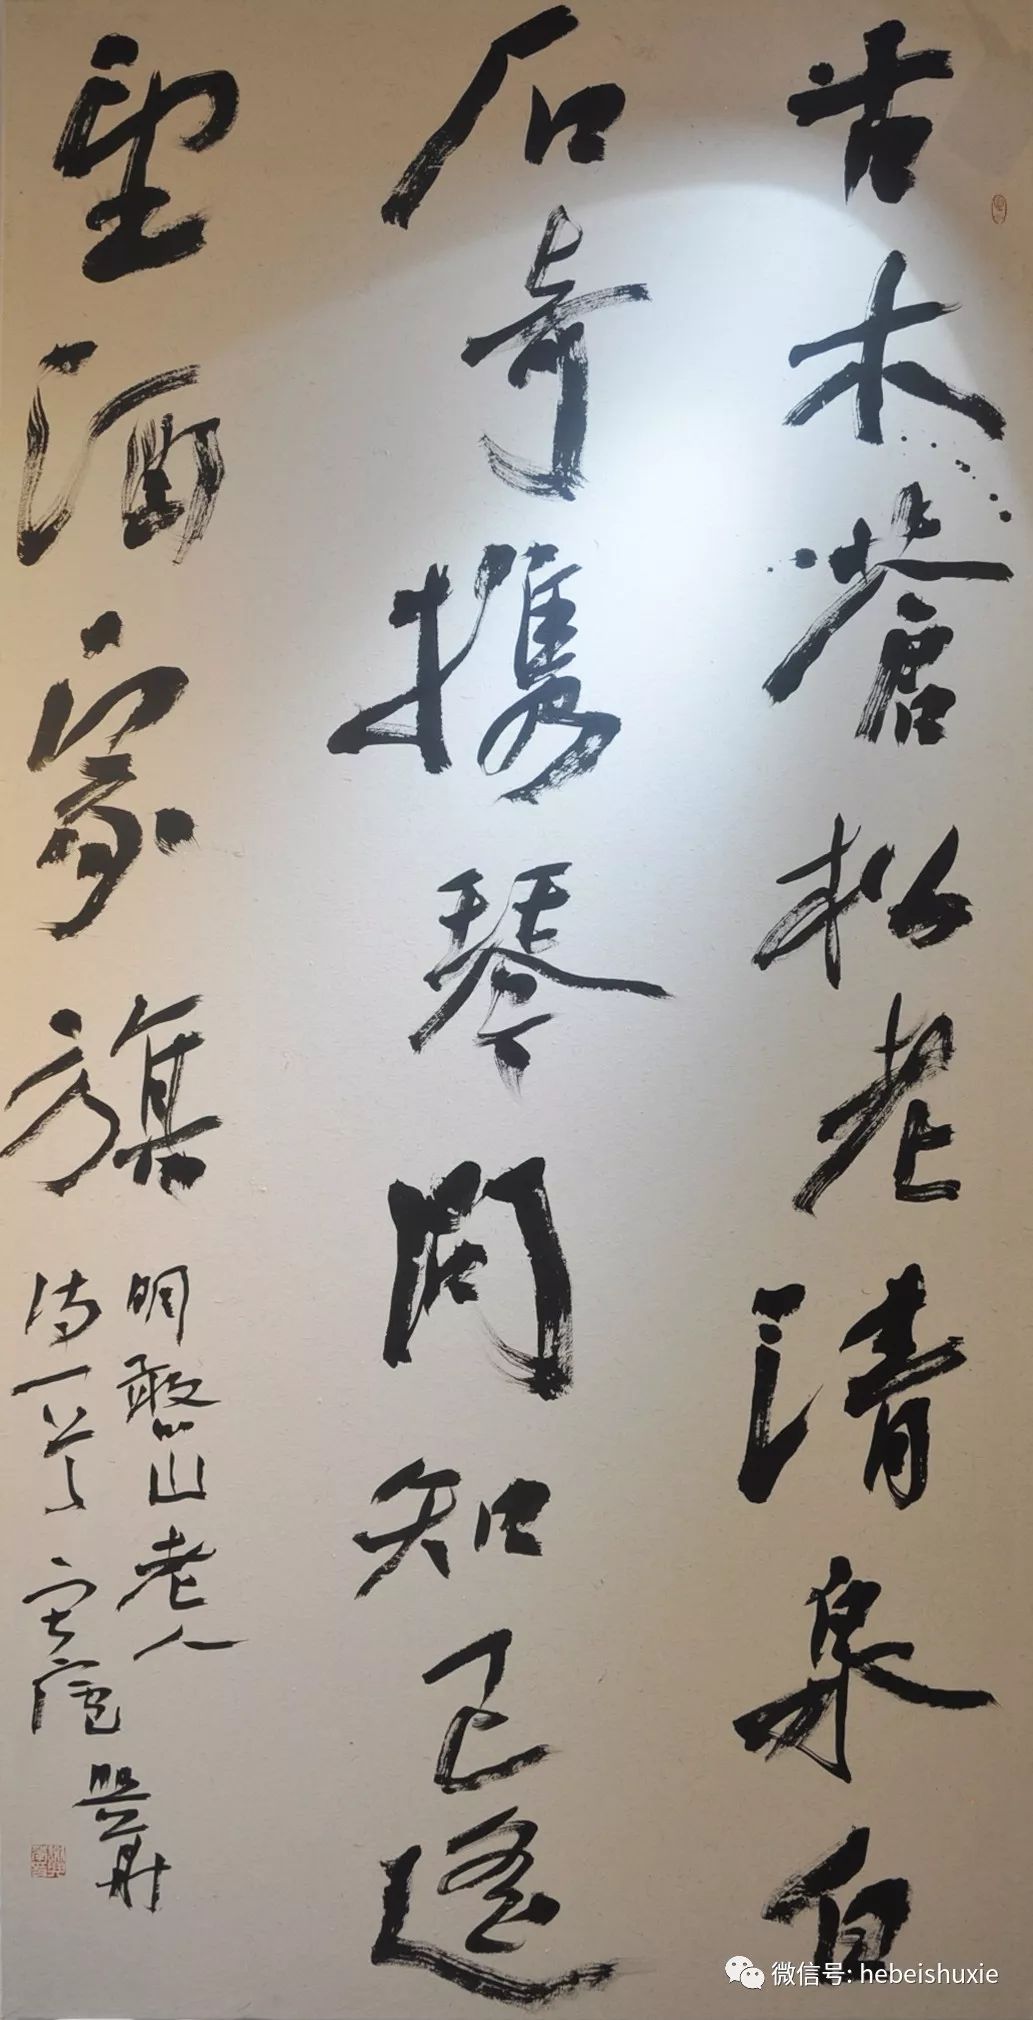 古木蒼松老清泉白
石奇攜琴問知己遙
望酒家旗
明憨山老人
詩一首
微信号: hebeishuxie